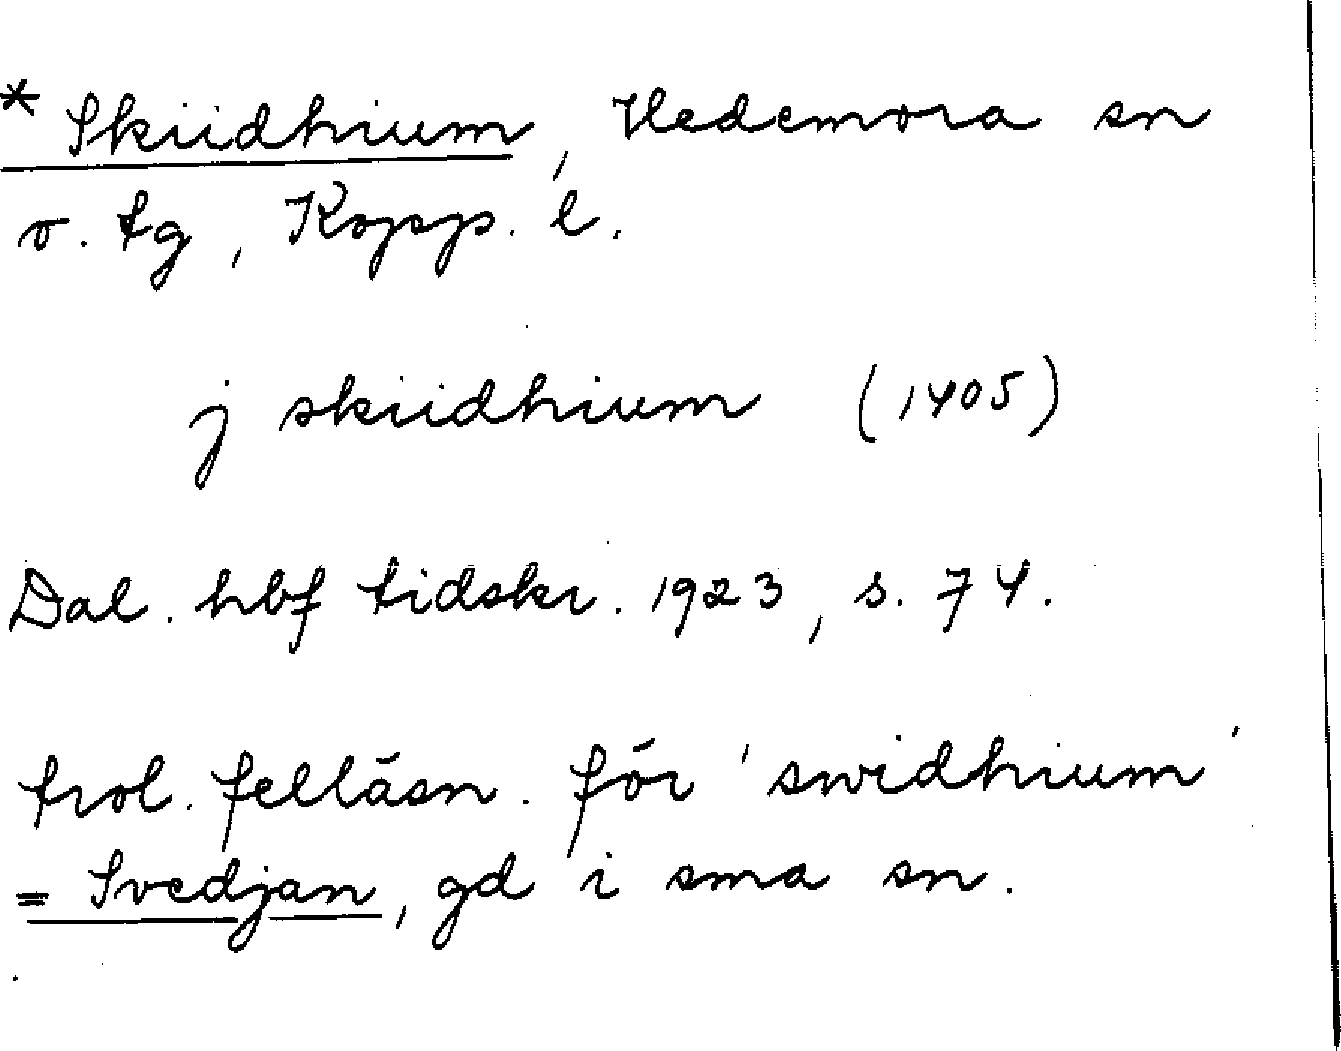 * Skiidhium, Hedemora sn
o. tg, Kopp. l.
j skiidhium (1405)
Dal. hbf tidskr. 1923, s. 74.
trol. felläsn. för 'swidhium'
= Svedjan, gd i sma sn.